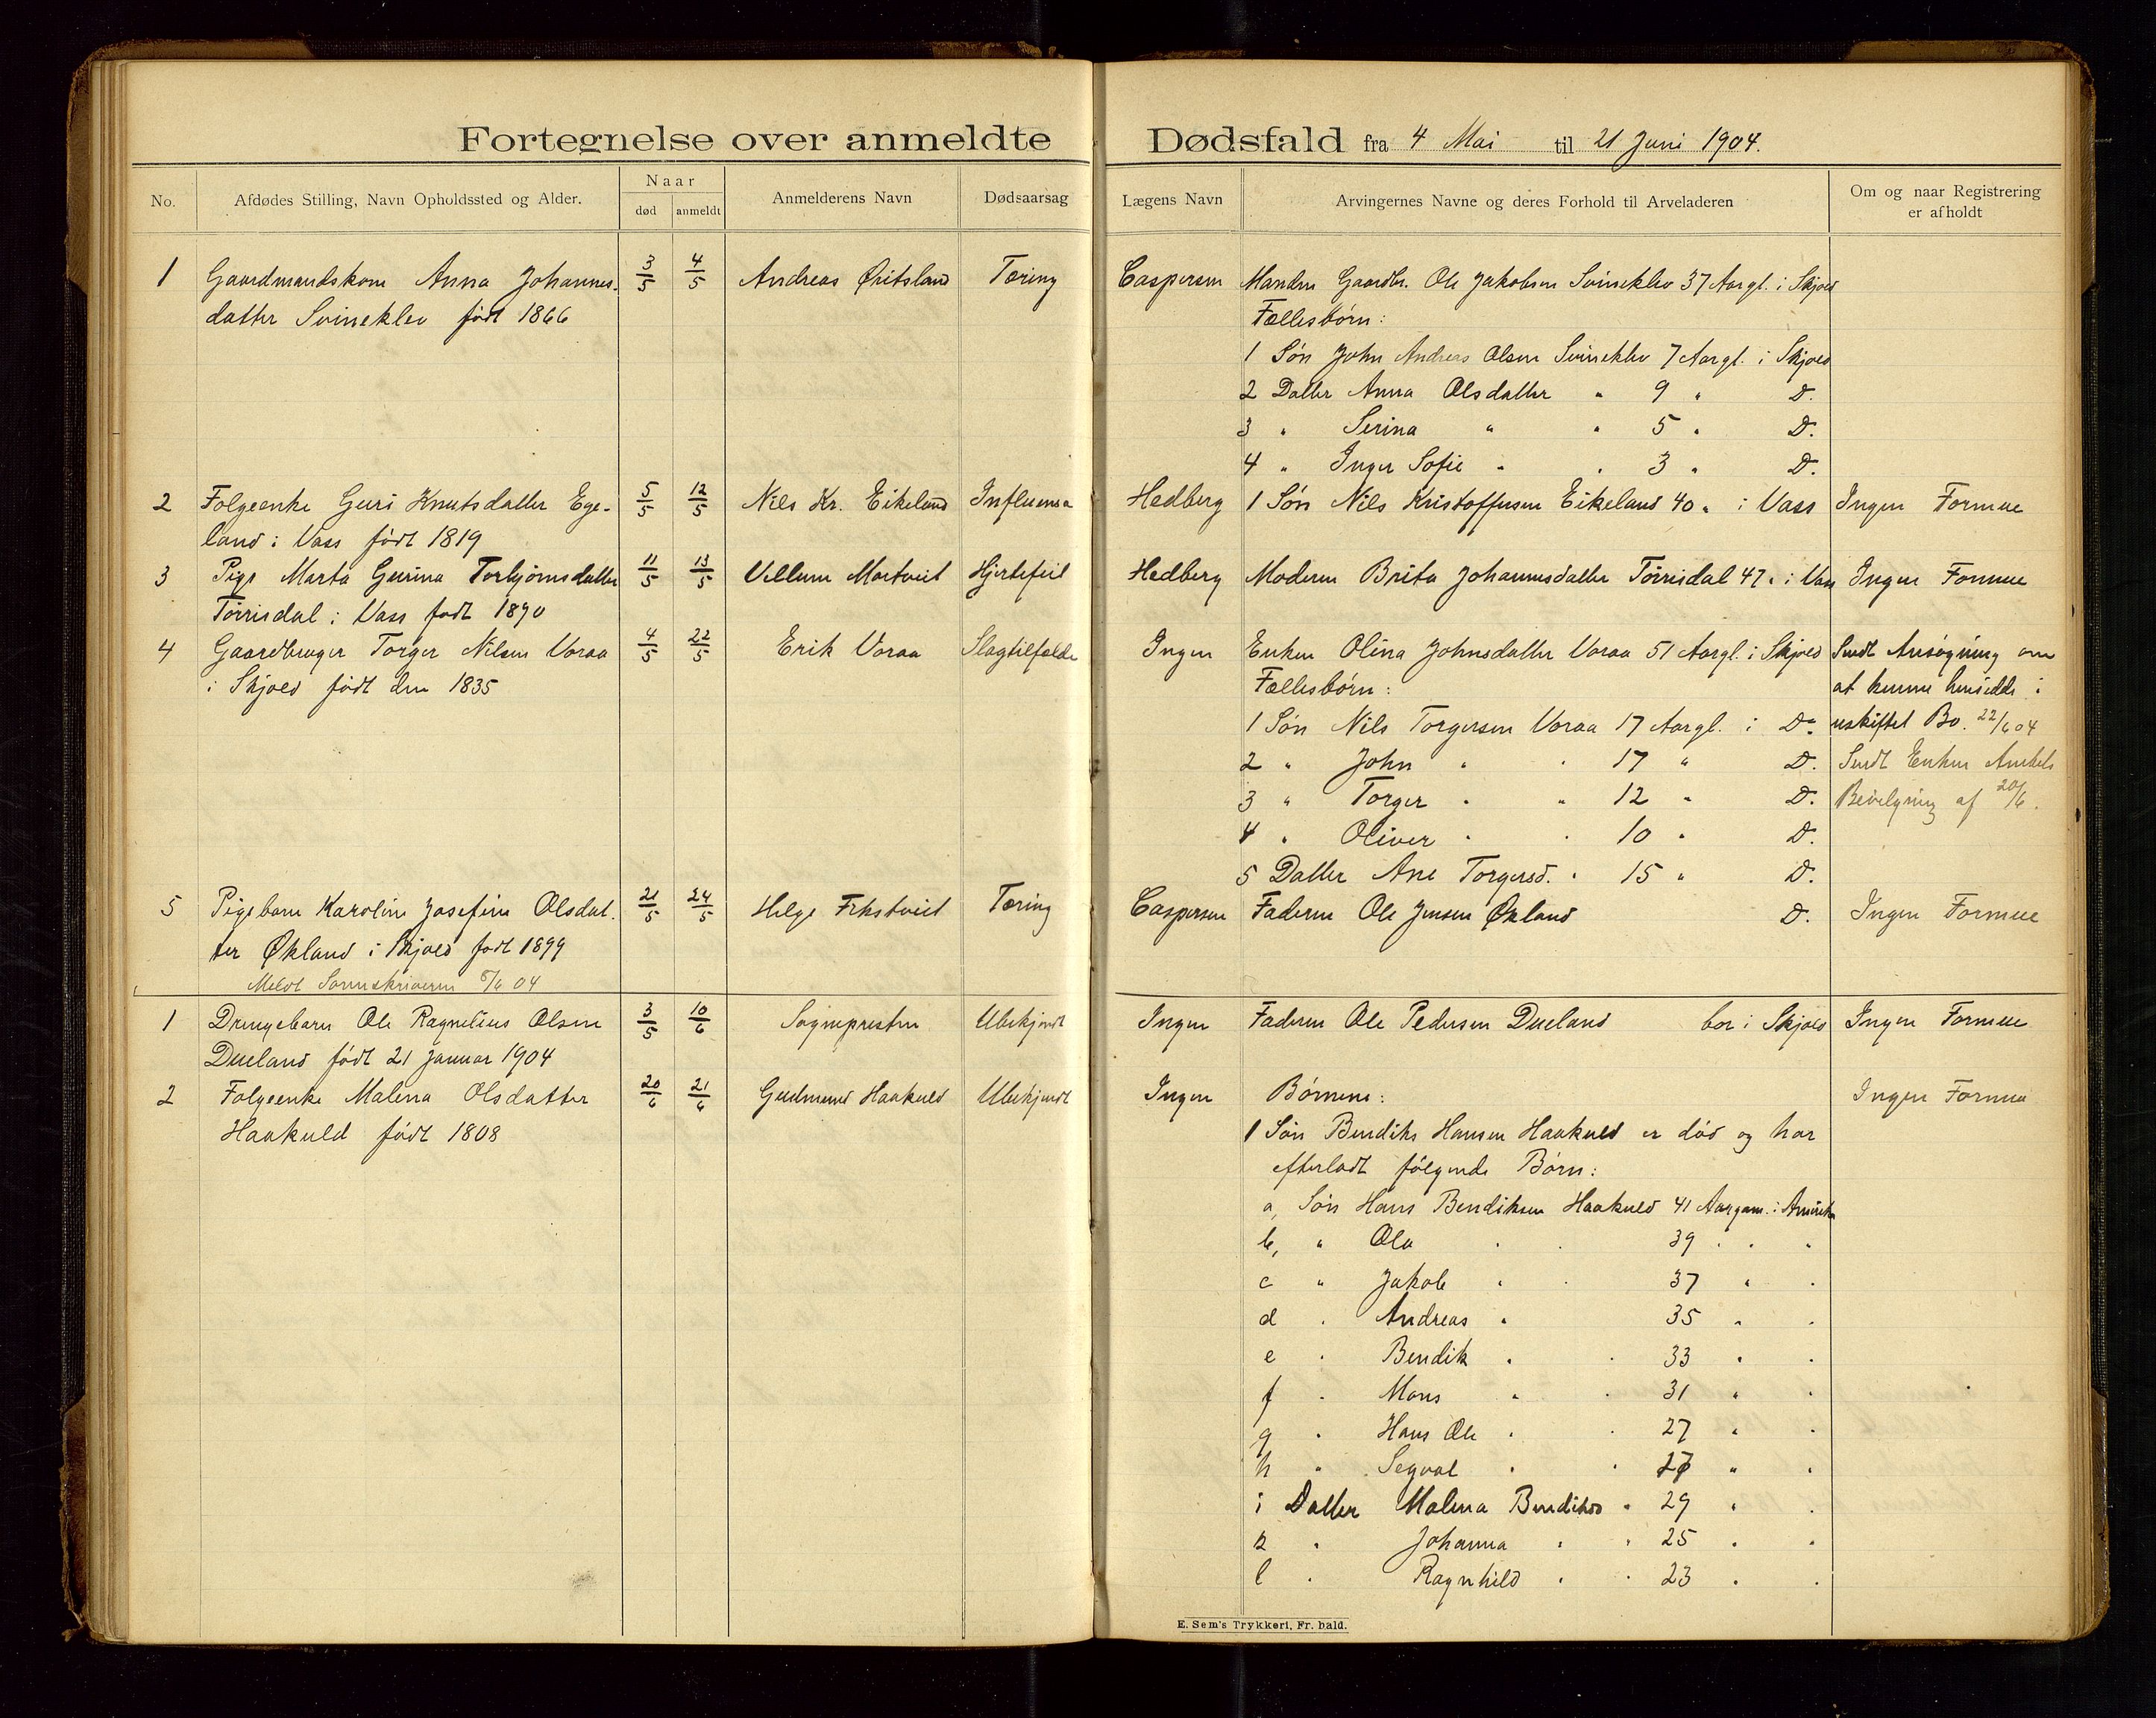 Fortegnelse over anmeldte Dødsfald fra 4 Mai til 21 Juni 1904.
No. Afdødes Stilling, Navn Opholdssted og Alder. Naar død anmeldt Anmelderens Navn Dødsaarsag Lægens Navn Arvingernes Navne og deres Forhold til Arveladeren Om og naar Registrering er afholdt
1 Gaardmandskone Anna Johannes- 3/5 4/5 Andreas Øritsland Tæring Caspersen Manden Gaardbr. Ole Jakobsen Svineklev 37 Aargl. i Skjold
datter Svineklev født 1866 Fællesbørn:
1 Søn John Andreas Olsen Svineklev 7 Aargl. i Skjold
2 Datter Anna Olsdatter " 9 " Do.
3 " Serina " " 5 " Do.
4 " Inger Sofie " " 3 " Do.
2 Folgeenke Guri Knutsdatter Ege- 5/5 12/5 Nils Kr. Eikeland Influensa Hedberg 1 Søn Nils Kristoffersen Eikeland 40 " i Vass Ingen Formue
land i Vass født 1819
3 Pige Marta Gurina Torbjørnsdatter 11/5 13/5 Villum Mortveit Hjertefeil Hedberg Moderen Brita Johannesdatter Tørrisdal 47 " i Vass Ingen Formue
Tørrisdal i Vass født 1890
4 Gaardbruger Torger Nilsen Voraa 4/5 22/5 Erik Voraa Slagtilfælde Ingen Enken Olina Johnsdatter Voraa 51 Aargl. i Skjold Sendt Ansøgning om
i Skjold født den 1835 Fællesbørn: at kunne hensidde i
1 Søn Nils Torgersen Voraa 17 Aargl. i Do. uskiftet Bo. 22/6 04
2 " John " " 17 " Do. Sendt Enken Amtets
3 " Torger " " 12 " Do. Bevilgning af 20/6.
4 " Oliver " " 10 " Do.
5 Datter Ane Torgersd. " 15 " Do.
5 Pigebarn Karoline Josefine Olsdat- 21/5 24/5 Helge Frkstveit Tæring Caspersen Faderen Ole Jensen Økland Do. Ingen Formue
ter Økland i Skjold født 1899
Meldt Sorenskriveren 8/6 04
1 Drengebarn Ole Ragnelius Olsen 3/5 10/6 Sognepresten Ubekjendt Ingen Faderen Ole Pedersen Dueland bor i Skjold Ingen Formue
Dueland født 21 Januar 1904
2 Folgeenke Malena Olsdatter 20/6 21/6 Gudmund Haakuld Ubekjendt Ingen Børnene: Ingen Formue
Haakuld født 1808 1 Søn Bendiks Hansen Haakuld er død og har
efterladt følgende Børn:
a, Søn Hans Bendiksen Haakuld 41 Aargam. i Amerika
b, " Ola " " 39 " " "
c " Jakob " " 37 " "
d " Andreas " 35 " "
e " Bendik " " 33 " "
f " Mons " " 31 " "
g " Hans Ole " " 27 " "
h " Segval " " 27 " "
i Datter Malena Bendiksd " 29 " "
k " Johanna " " 25 " "
l " Ragnhild " " 23 " "
E. Sem's Trykkeri, Fr. hald.